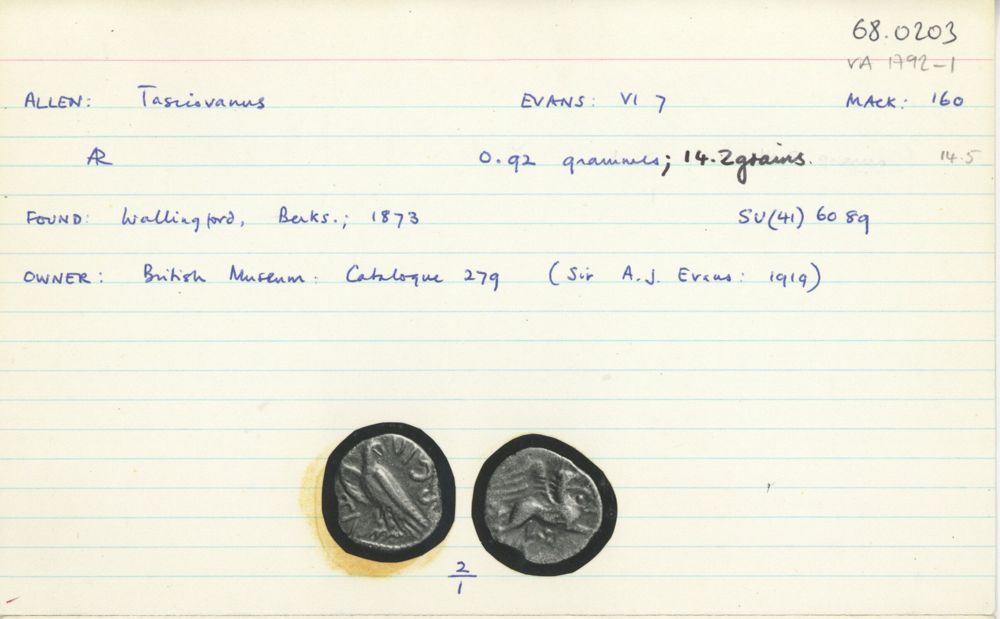 68.0203
VA 1792-1
ALLEN: Tasciovanus EVANS: VI 7 MACK: 160
AR 0.92 grammes; 14.2grains. 14.5
FOUND: Wallingford, Berks.; 1873 SU(41) 6089
OWNER: British Museum: Catalogue 279 (Sir A.J. Evans: 1919)
2
1